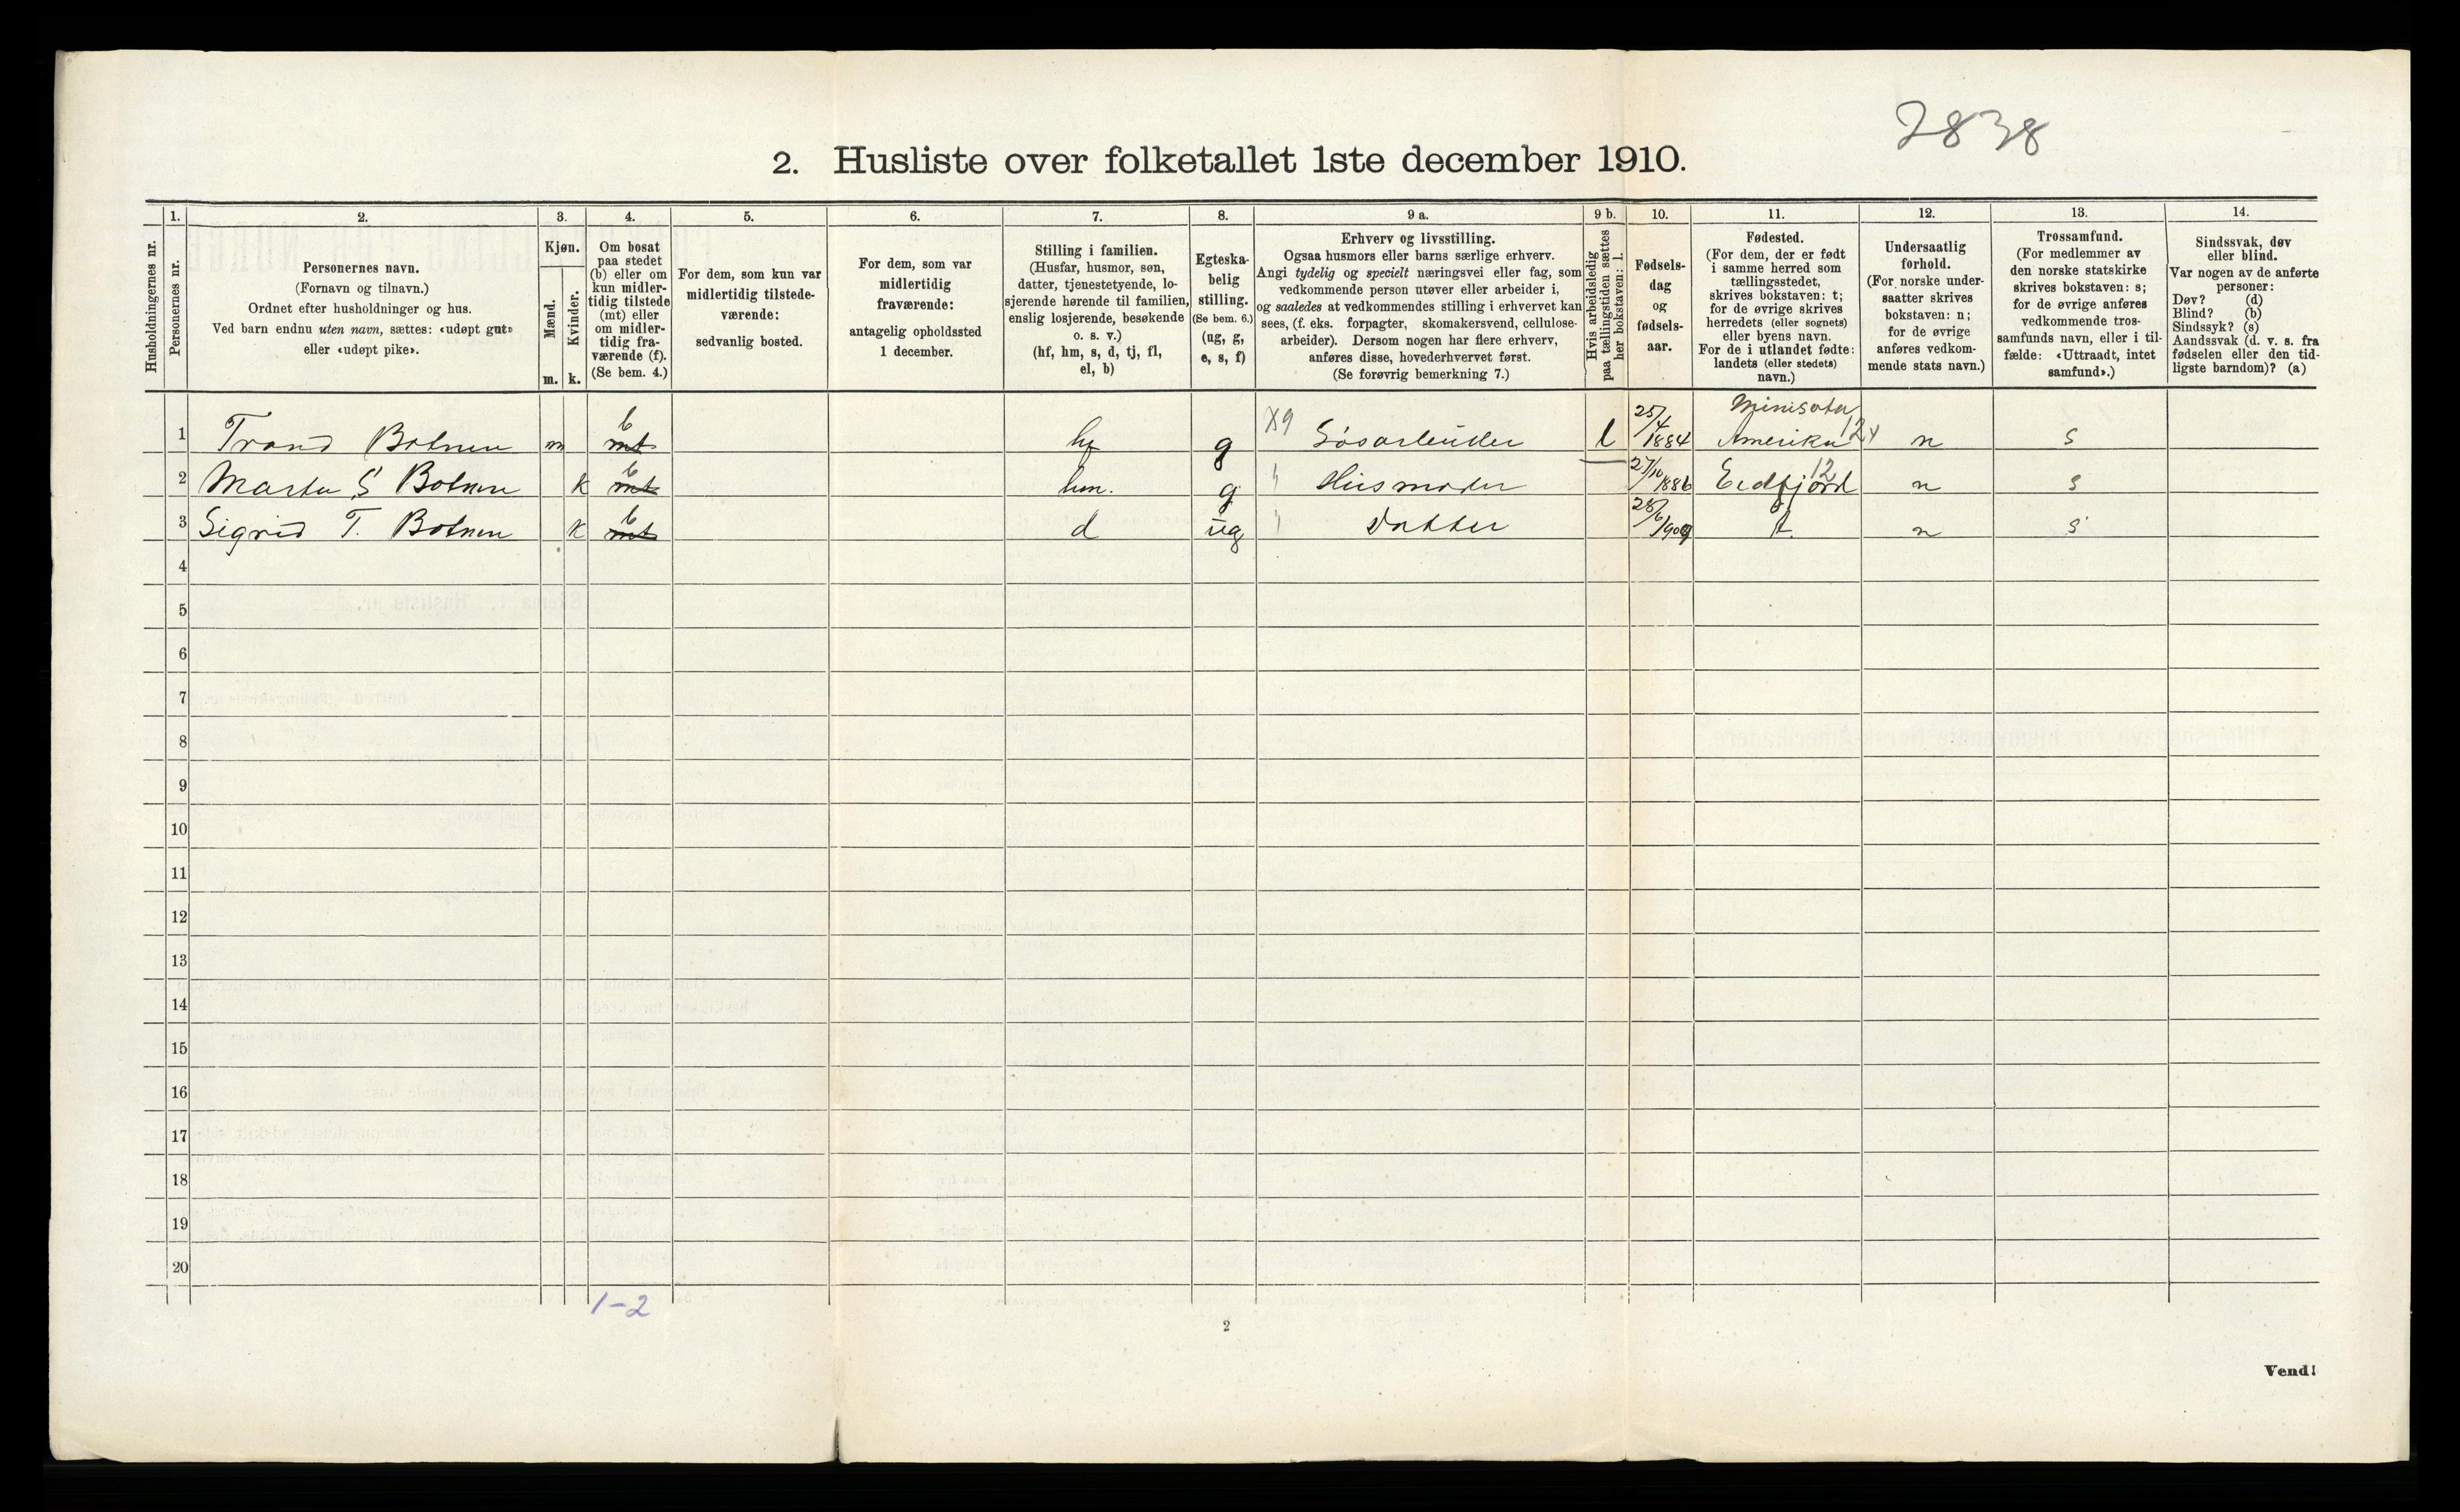 2838
2. Husliste over folketallet 1ste december 1910.
Husholdningernes nr.
1.
Personernes nr.
2.
Personernes navn.
(Fornavn og tilnavn.)
Ordnet efter husholdninger og hus.
Ved barn endnu uten navn, sættes: «udøpt gut»
eller «udøpt pike».
3.
Kjøn.
Mænd.
Kvinder.
m. k.
4.
Om bosat
paa stedet
(b) eller om
kun midler-
tidig tilstede
(mt) eller
om midler-
tidig fra-
værende (f).
(Se bem. 4.)
5.
For dem, som kun var
midlertidig tilstede-
værende:
sedvanlig bosted.
6.
For dem, som var
midlertidig
fraværende:
antagelig opholdssted
1 december.
7.
Stilling i familien.
(Husfar, husmor, søn,
datter, tjenestetyende, lo-
sjerende hørende til familien,
enslig losjerende, besøkende
o. s. v.)
(hf, hm, s, d, tj, fl,
el, b)
8.
Egteska-
belig
stilling.
(Se bem. 6.)
(ug, g,
e, s, f)
9 a.
Erhverv og livsstilling.
Ogsaa husmors eller barns særlige erhverv.
Angi tydelig og specielt næringsvei eller fag, som
vedkommende person utøver eller arbeider i,
og saaledes at vedkommendes stilling i erhvervet kan
sees, (f. eks. forpagter, skomakersvend, cellulose-
arbeider). Dersom nogen har flere erhverv,
anføres disse, hovederhvervet først.
(Se forøvrig bemerkning 7.)
9 b.
Hvis arbeidsledig
paa tællingstiden sættes
her bokstaven: l.
10.
Fødsels-
dag
og
fødsels-
aar.
11.
Fødested.
(For dem, der er født
i samme herred som
tællingsstedet,
skrives bokstaven: t;
for de øvrige skrives
herredets (eller sognets)
eller byens navn.
For de i utlandet fødte:
landets (eller stedets)
navn.)
12.
Undersaatlig
forhold.
(For norske under-
saatter skrives
bokstaven: n;
for de øvrige
anføres vedkom-
mende stats navn.)
13.
Trossamfund.
(For medlemmer av
den norske statskirke
skrives bokstaven: s;
for de øvrige anføres
vedkommende tros-
samfunds navn, eller i til-
fælde: «Uttraadt, intet
samfund».)
14.
Sindssvak, døv
eller blind.
Var nogen av de anførte
personer:
Døv? (d)
Blind? (b)
Sindssyk? (s)
Aandssvak (d. v. s. fra
fødselen eller den tid-
ligste barndom)? (a)
1 Trond Botnen m mt b hf g X9 Løsarbeider l 25/4 1884 Minisota Amerika 124 n s
2 Marta S Botnen k mt b hm. g " Husmoder 27/10 1886 Eidfjord 12 n s
3 Sigrid T. Botnen k mt b d ug " Datter 28/6 1909 t. n s
4
5
6
7
8
9
10
11
12
13
14
15
16
17
18
19
20
1-2
2
Vend!